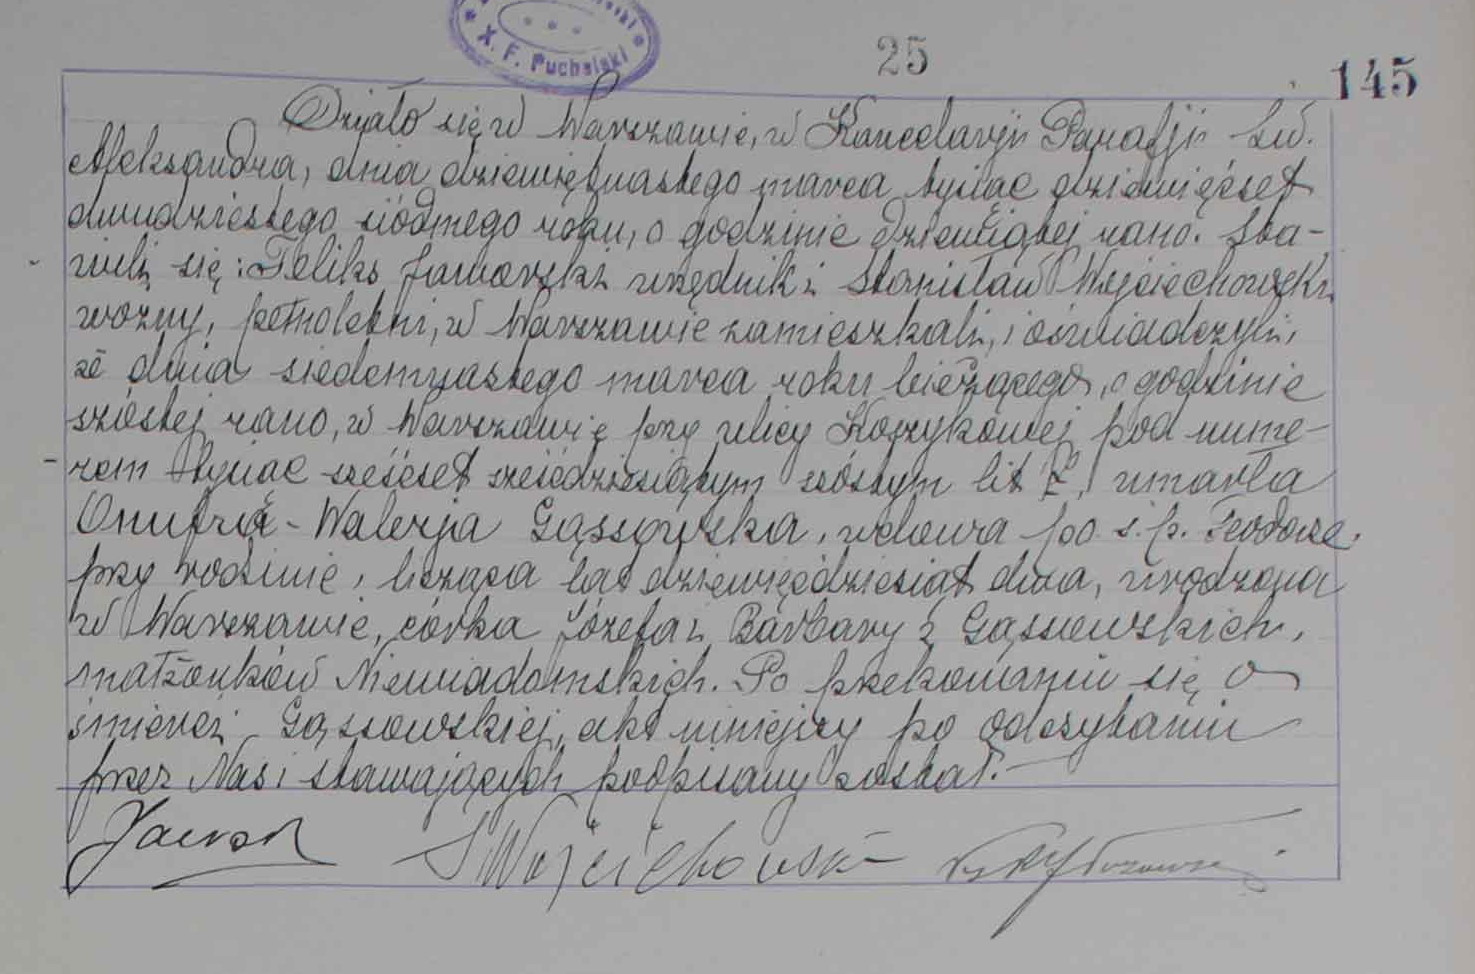 X. F. Puchalski
25
145
Działo się w Warszawie, w Kancelarji Parafji św.
Aleksandra, dnia dziewiętnastego marca tysiąc dziewięćset
dwudziestego siódmego roku, o godzinie dziewiątej rano. Sta-
wili się: Feliks Jaworski urzędnik i Stanisław Wojciechowski
woźny, pełnoletni, w Warszawie zamieszkali, i oświadczyli,
że dnia siedemnastego marca roku bieżącego, o godzinie
szóstej rano, w Warszawie przy ulicy Koszykowej pod nume-
rem tysiąc sześćset sześćdziesiątym szóstym lit umarła
Onufra-Walerja Gąssowska, wdowa po ś.p. Teodorze,
przy rodzinie, licząca lat dziewięćdziesiąt dwa, urodzona
w Warszawie, córka Józefa i Barbary z Gąssowskich,
małżonków Niewiadomskich. Po przekonaniu się o
śmierci Gąssowskiej, akt niniejszy po odczytaniu
przez Nas i stawających podpisany został.
SWojciechowski